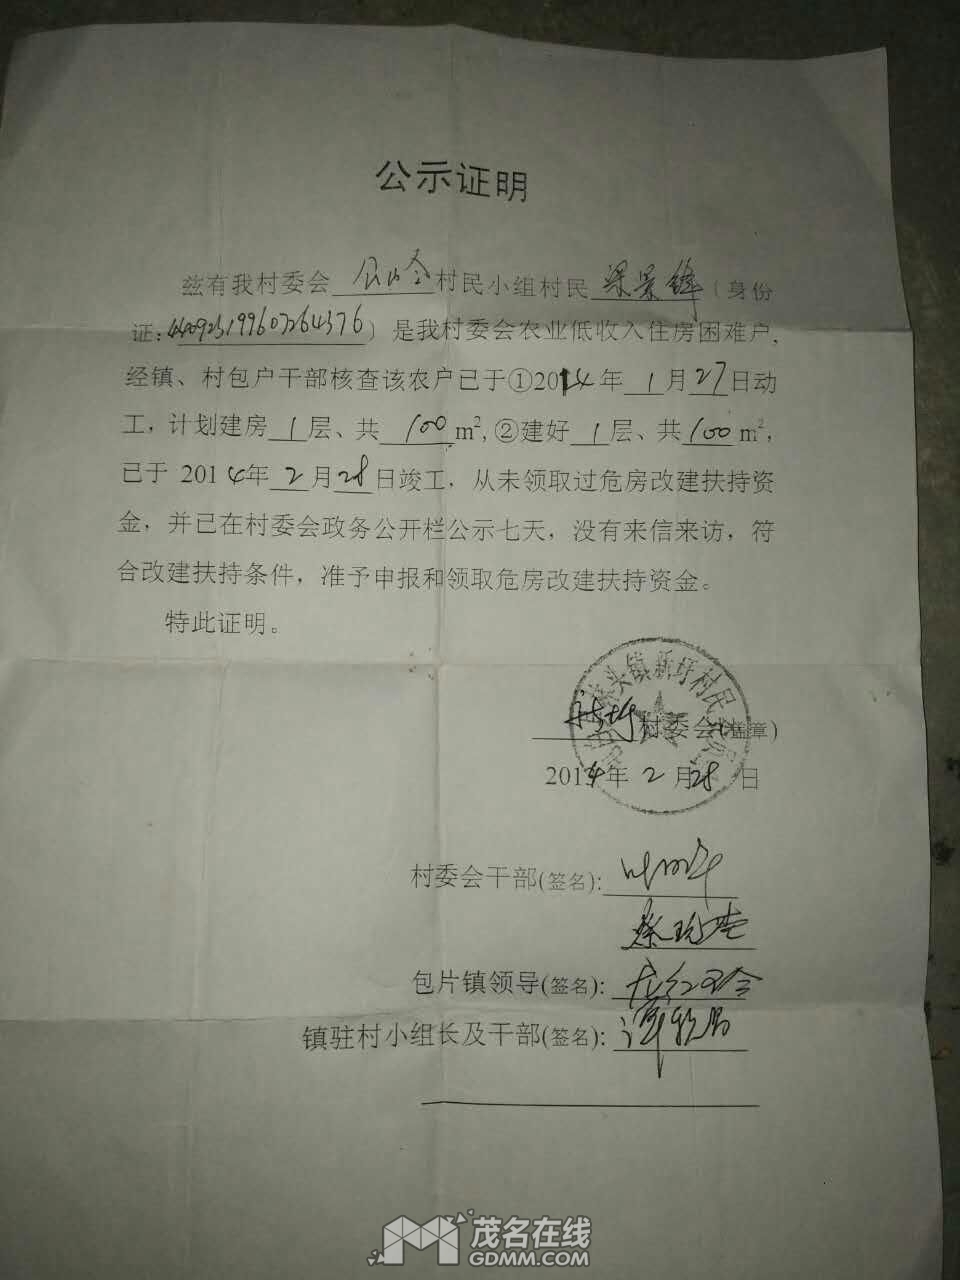 公示证明
兹有我村委会 村民小组村民 梁景锋 (身份
证: 440923199607264376) 是我村委会农业低收入住房困难户,
经镇、村包户干部核查该农户已于①2014年 1 月 27 日动
工, 计划建房 1 层、共 100 m², ②建好 1 层、共 100 m²,
已于 2014年 2 月 28 日竣工, 从未领取过危房改建扶持资
金, 并已在村委会政务公开栏公示七天, 没有来信来访, 符
合改建扶持条件, 准予申报和领取危房改建扶持资金。
特此证明。
林头镇新圩村民
新圩村委会(盖章)
2014年 2 月 28 日
村委会干部(签名):
包片镇领导(签名):
镇驻村小组长及干部(签名):
茂名在线
GDMM.COM